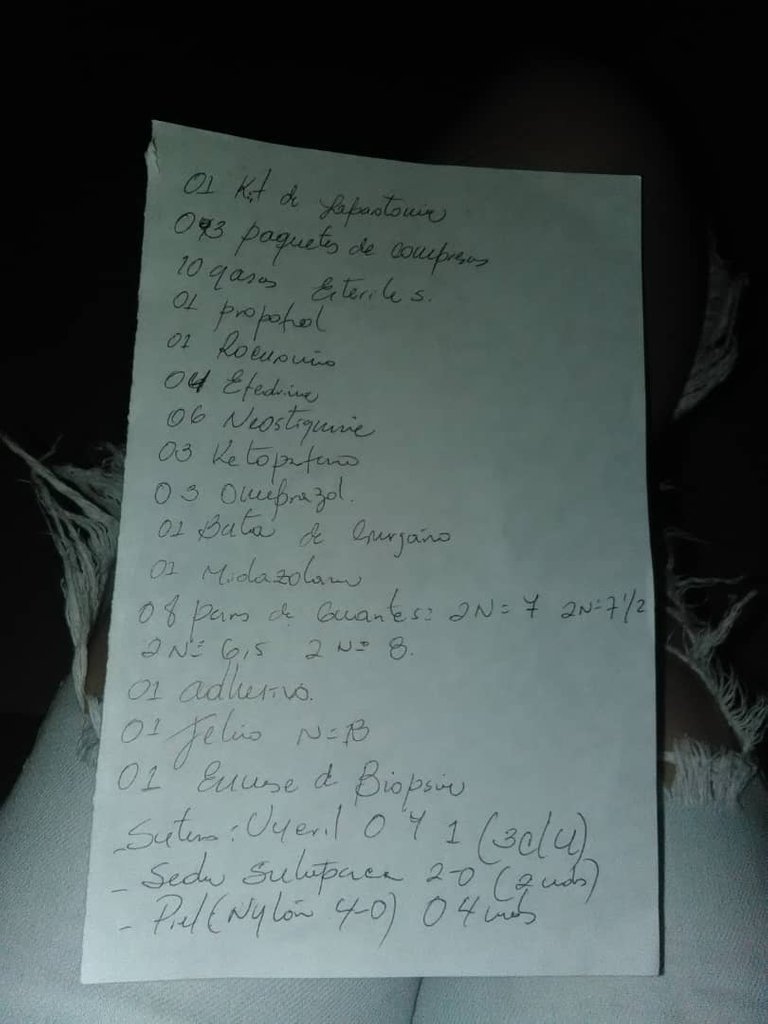 01 Kit de Lapaotomia
03 paquetes de compresas
10 gasas Esteriles.
01 propofol
01 Rocuronio
04 Efedrina
06 Neostigmine
03 Ketoprofeno
03 Omeprazol.
01 Bata de Cirujano
01 Midazolam
08 pares de Guantes: 2N=7 2N=7 1/2
2N= 6,5 2 N= 8.
01 adhesivo.
01 N=
01 Envase de Biopsia
- Sutura: Vycril 0 y 1 (3c/u)
- Seda 2-0 (2 unds)
- Piel (Nylón 4-0) 04 unds